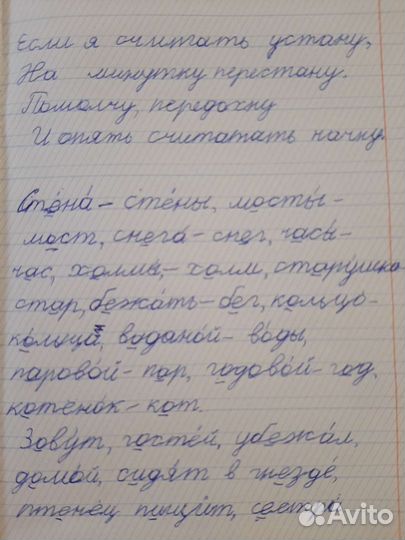 Если я считать устану,
На минутку перестану.
Помолчу, передохну
И опять считатать начну.
Стена́ – сте́ны, мосты́ –
мост, снега́ – снег, часы́ –
час, холмы́, – холм, стару́шка
стар, бежа́ть – бег, кольцо –
ко́льца, водяно́й – во́ды,
парово́й – пар, годово́й – год,
котёнок – кот.
Зову́т, госте́й, убежа́л,
домо́й, сидя́т в гнезде́,
птене́ц пищи́т,
Avito